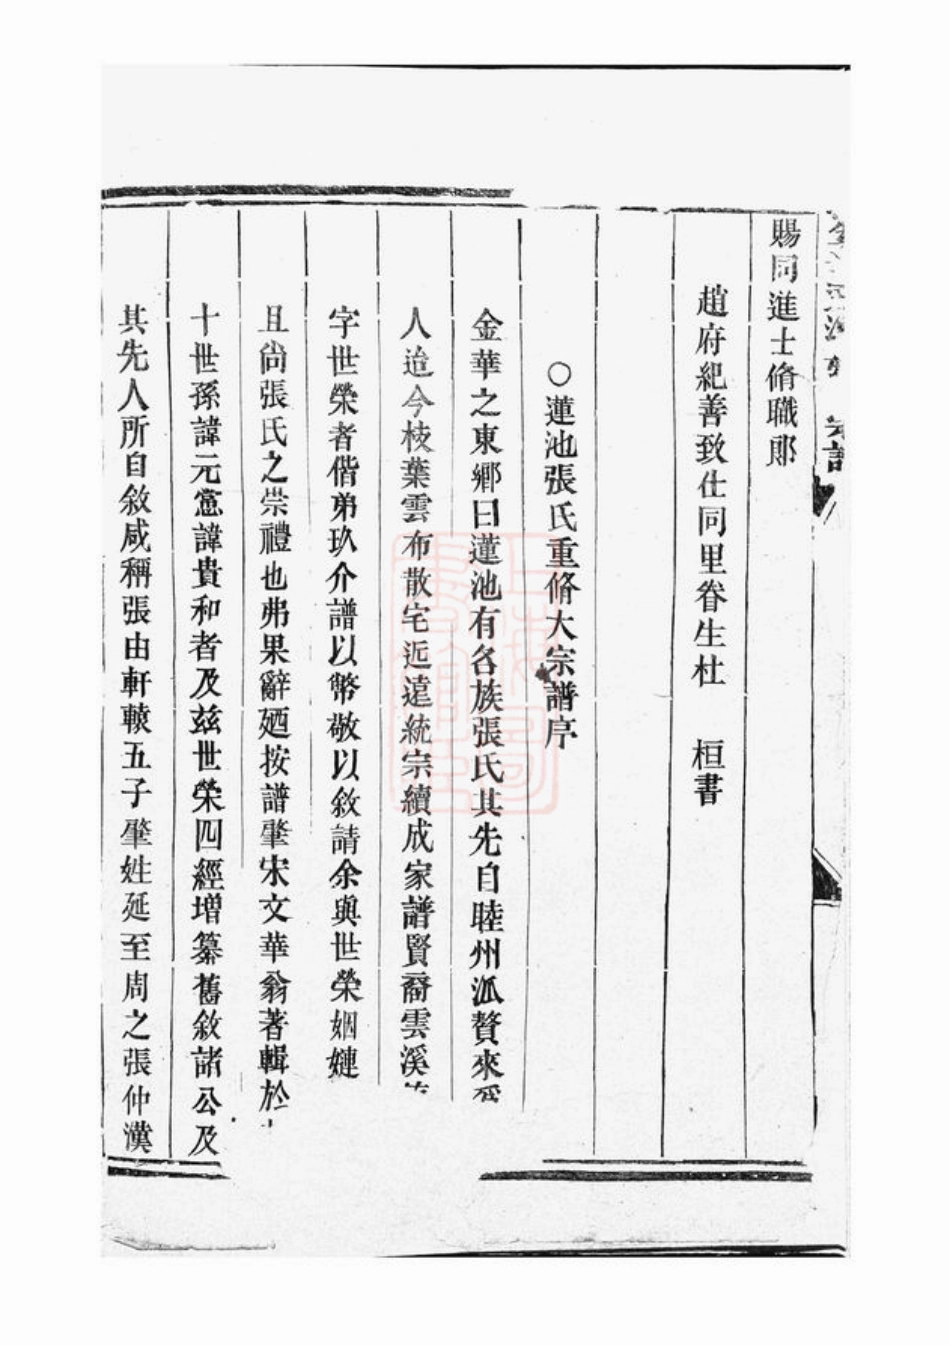 賜同進士脩職郎
趙府紀善致仕同里眷生杜 桓書
○蓮池張氏重脩大宗譜序
金華之東鄉曰蓮池有名族張氏其先自睦州派贅來爲
人迨今枝葉雲布散宅近遠統宗續成家譜賢裔雲溪
字世榮者偕弟玖介譜以幣敬以敘請余與世榮姻婕
且尚張氏之崇禮也弗果辭廼按譜肇宋文華翁著輯於
十世孫諱元憲諱貴和者及兹世榮四經增纂舊敘諸公及
其先人所自敘咸稱張由軒轅五子肇姓延至周之張仲漢
宗譜